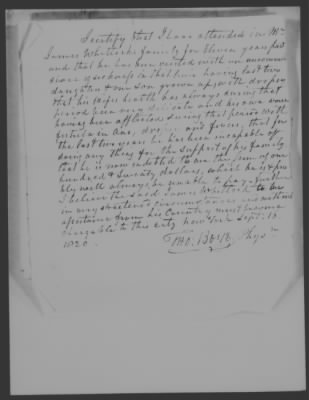 I certify that I have attended in Mr
James Whitlock's family for eleven years past
and that he has been visited with an uncommon
share of sickness in that time having lost two
daughters & one son grown up, with dropsy
that his wife's health has always during that
period been very delicate and his own son
having been afflicted during that period with
fistula in Ano, dropsy, and fevers, that for
the last two years he has been incapable of
doing any thing for the support of his family
that he is now indebted to me the sum of one
hundred & seventy dollars, which he is &
will always be unable to pay & further
I believe the said James Whitlock to be
in very straitened circumstances and without
assistance from his Country must become
chargeable to this city New York Sept. 13
1820
Tho. Boyd, Physn